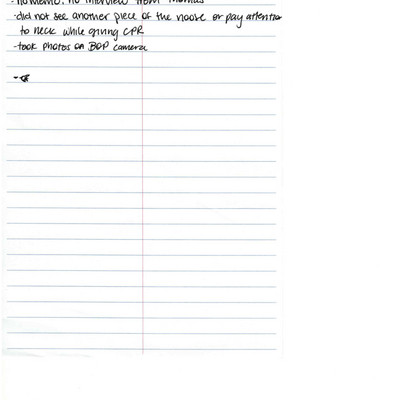 - no memo, no interview from Thomas
-did not see another piece of the noose or pay attention
to neck while giving CPR
-took photos on BOP camera
-